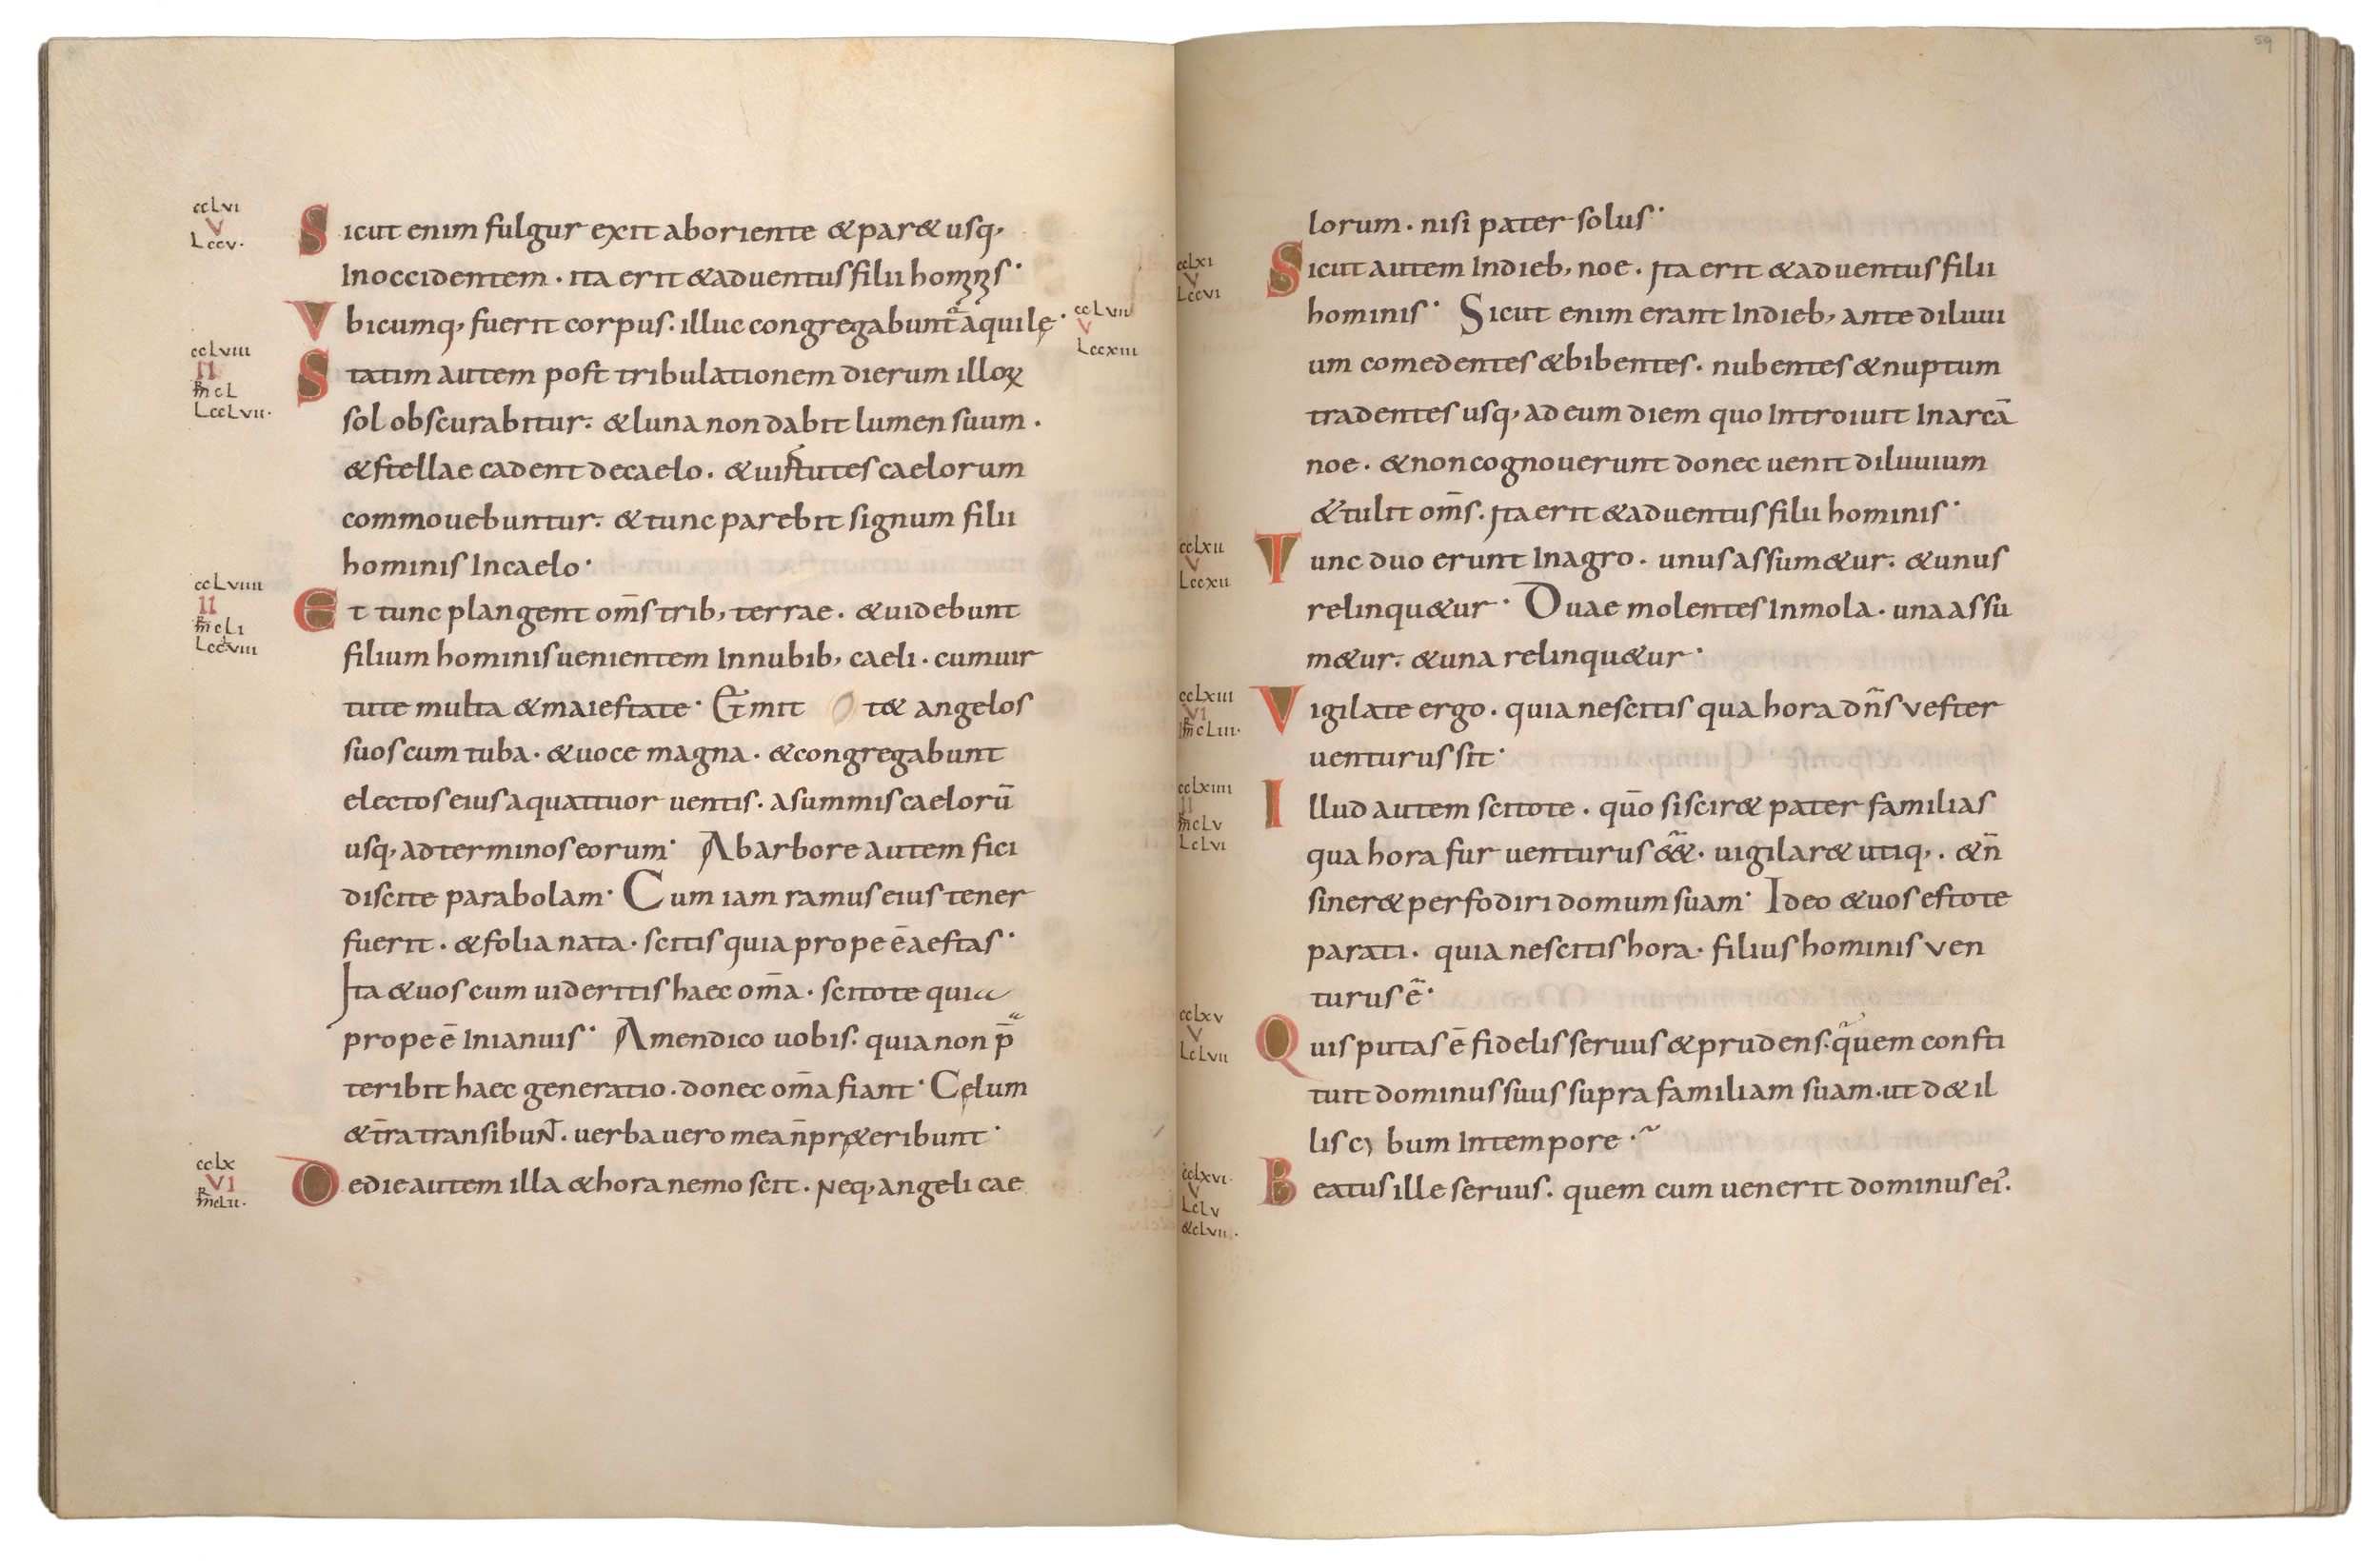 ccLvi
V
Lccv.
Sicut enim fulgur exit aboriente &par& usq,
Inoccidentem . ita erit &aduentus filii homīnis
Vbicumq, fuerit corpus: illuc congregabunt aquilę
ccLvii
V
Lccxiii
ccLviii
II
mcL
LccLvii.
Statim autem post tribulationem dierum illoꝝ
sol obscurabitur: &luna non dabit lumen suum .
&stellae cadent decaelo . &uirtutes caelorum
commouebuntur: &tunc parebit signum filii
hominis Incaelo
ccLviiii
II
mcLi
Lccviii
Et tunc plangent om̄s trib, terrae . &uidebunt
filium hominis uenientem Innubib, caeli . cumuir
tute multa &maiestate Et mit t& angelos
suos cum tuba . &uoce magna . &congregabunt
electos eius aquattuor uentis . asummis caelorū
usq, adterminos eorum Abarbore autem fici
discite parabolam Cum iam ramus eius tener
fuerit . &folia nata . scitis quia prope ē aestas
Ita &uos cum uideritis haec om̄a . scitote quia
prope ē Inianuis Amendico uobis: quia non p̄
teribit haec generatio . donec om̄a fiant Cęlum
&t̄ra transibuN̄ . uerba uero mea n̄ pręteribunt
ccLx
VI
mcLii.
Dedie autem illa &hora nemo scit . Neq, angeli cae
59
lorum . nisi pater solus
ccLxi
V
Lccvi
Sicut autem Indieb, noe . Ita erit &aduentus filii
hominis Sicut enim erant Indieb, ante diluui
um comedentes &bibentes . nubentes &nuptum
tradentes usq, ad eum diem quo Introiuit Inarcā
noe . &non cognouerunt donec uenit diluuium
&tulit om̄s . Ita erit &aduentus filii hominis
ccLxii
V
Lccxii
Tunc duo erunt Inagro . unus assum&ur: &unus
relinqu&ur Duae molentes Inmola . una assu
m&ur: &una relinqu&ur
ccLxiii
VI
mcLiii.
Vigilate ergo . quia nescitis qua hora dn̄s vester
uenturus sit
ccLxiiii
II
mcLv
LcLvi
Illud autem scitote . quō si scir& pater familias
qua hora fur uenturus &&. uigilar& utiq, . &n̄
siner& perfodiri domum suam Ideo &uos estote
parati . quia nescitis hora . filius hominis ven
turus ē
ccLxv
V
LcLvii
Quis putas ē fidelis seruus &prudens. quem consti
tuit dominus suus supra familiam suam. ut d& il
lis cybum Intempore
ccLxvi.
V
LcLv
&cLvii.
Beatus ille seruus . quem cum uenerit dominus ei᾽.